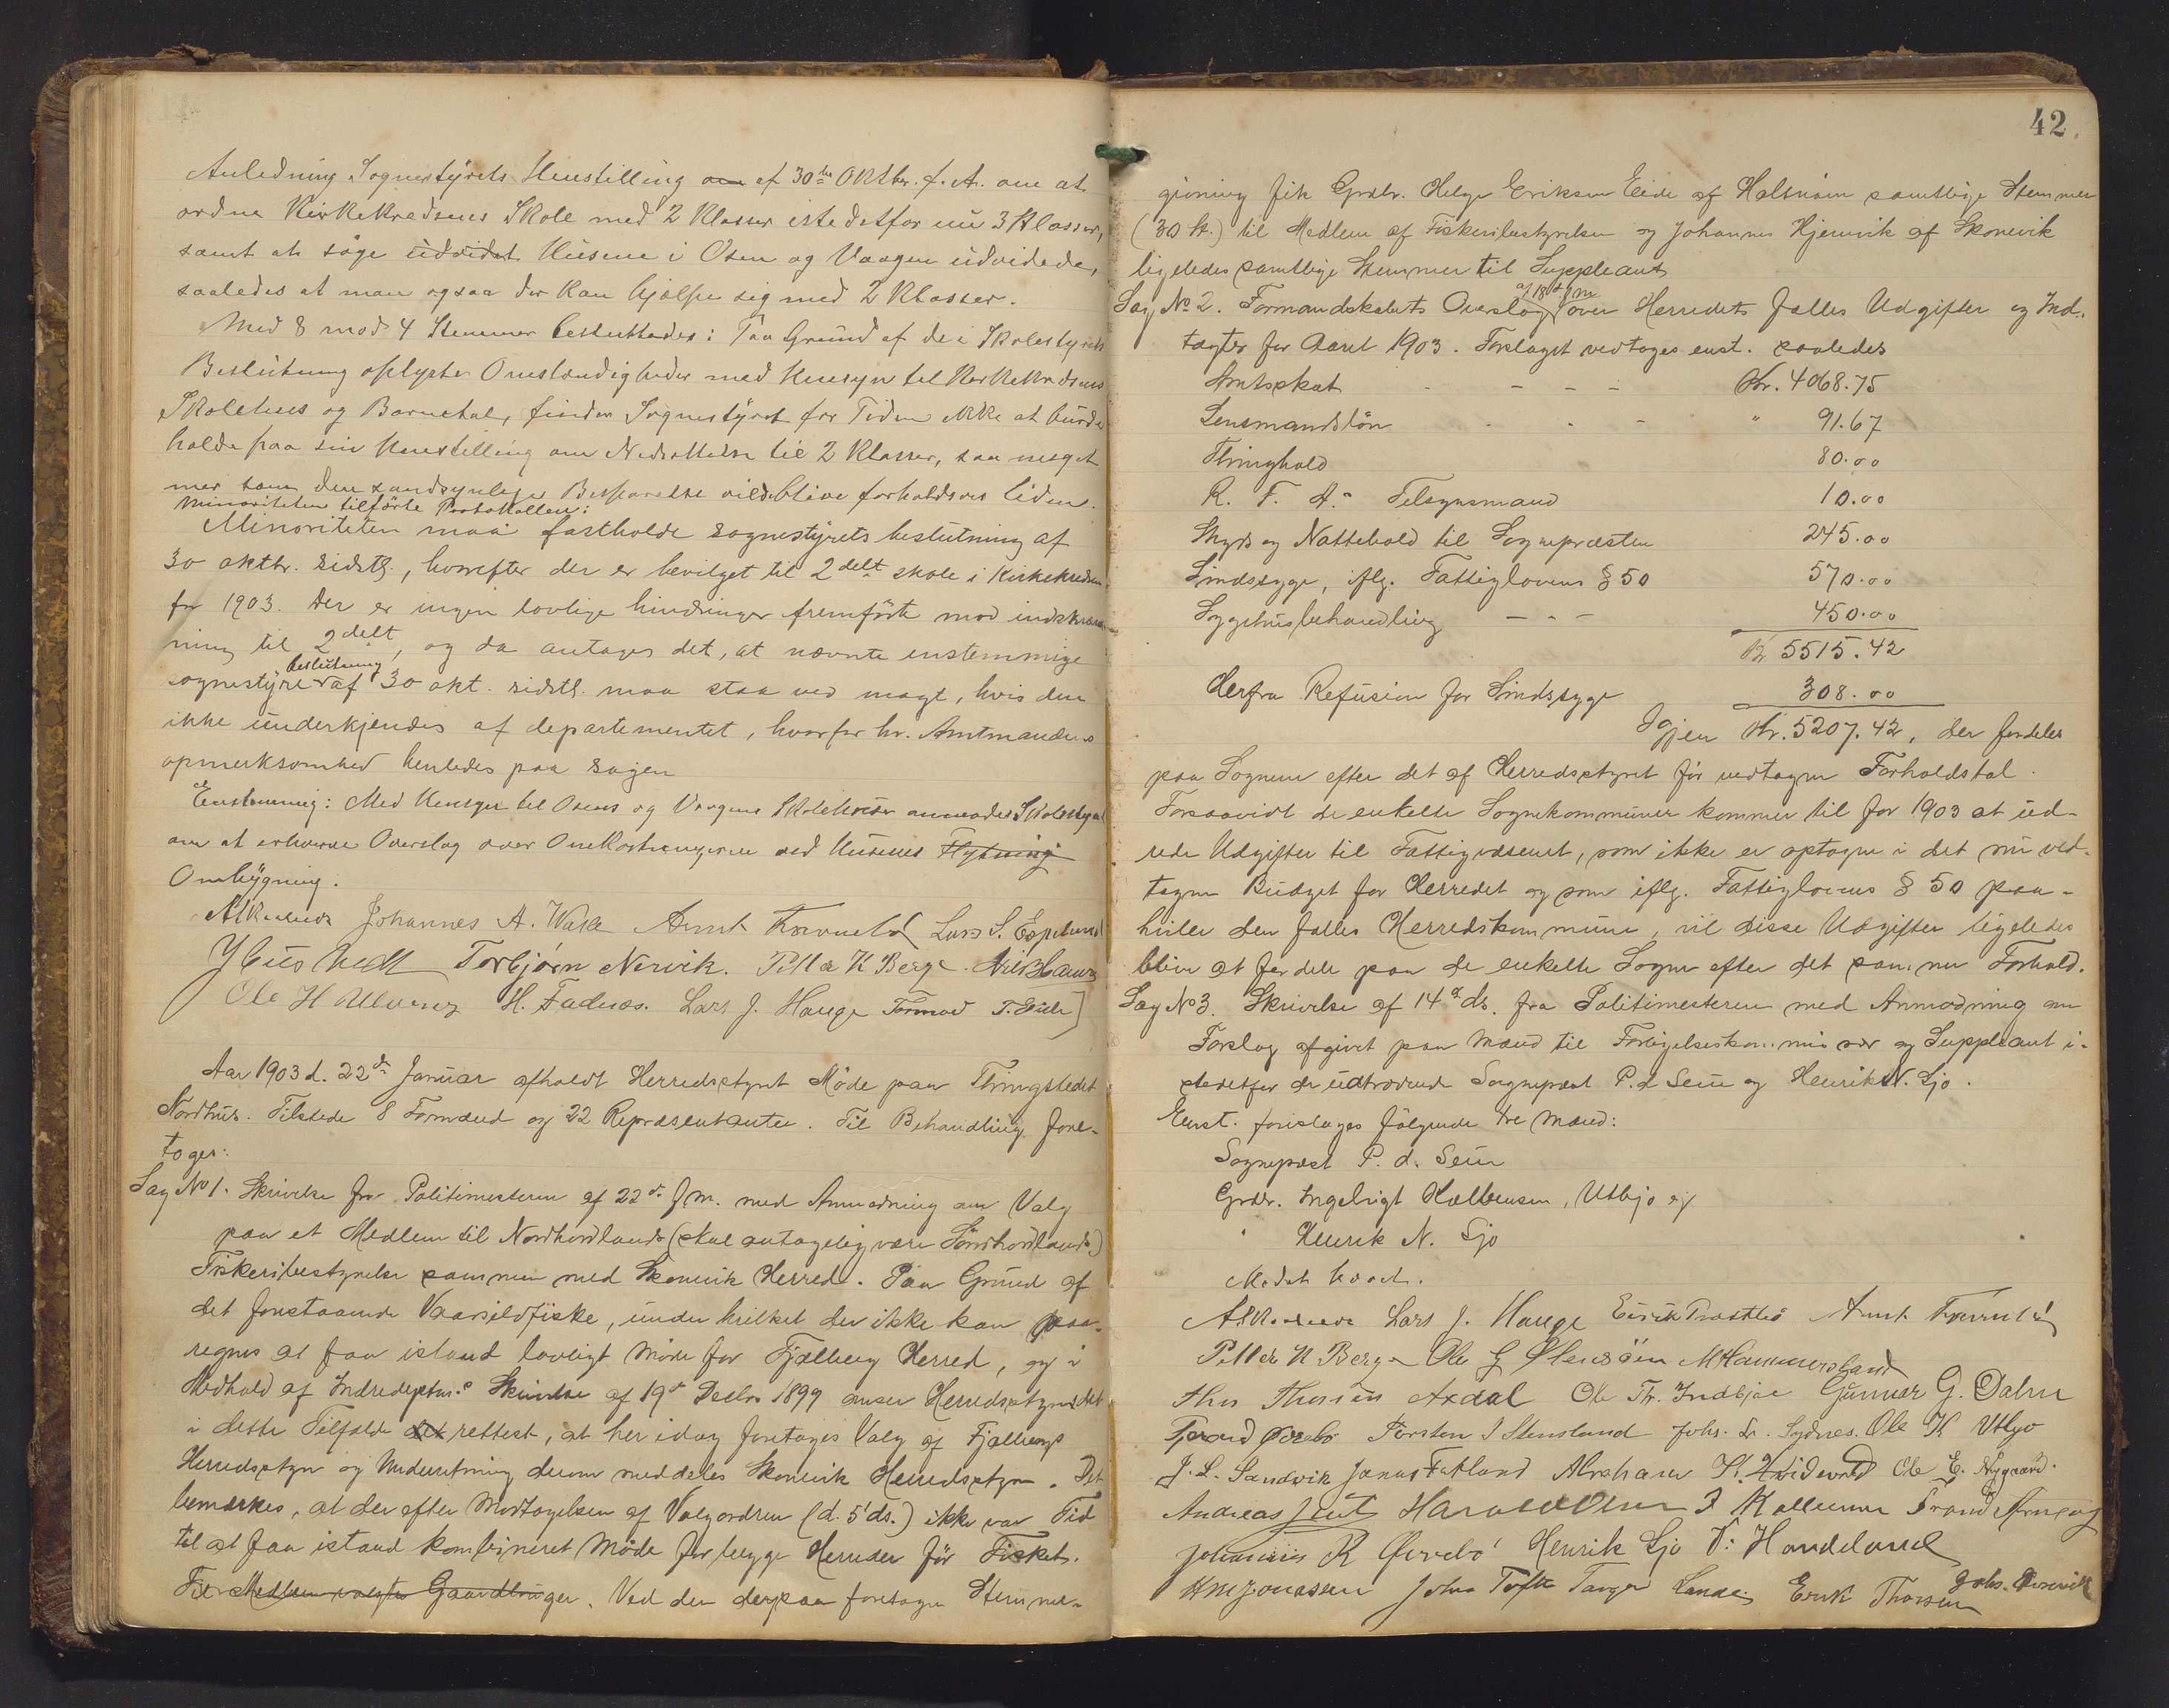 Anledning Sognestyrets Henstilling om af 30te Oktbr. f. A. om at
ordne Kirkekredsens Skole med 2 Klasser istedetfor nu 3 Klasser,
samt at søge udvidet Husene i Osen og Vaagen udvidede,
saaledes at man ogsaa der kan hjælpe sig med 2 Klasser.
Med 8 mod 4 Stemmer besluttedes: Paa Grund af de i Skolestyrets
Beslutning oplyste Omstændigheder med Hensyn til Kirkekredsens
Skolehus og Barnetal, finder Sognestyret for Tiden ikke at burde
holde paa sin Henstilling om Nedsættelse til 2 Klasser, saa meget
mer som den sandsynlige Besparelse vilde blive forholdsvis liden.
Minoriteten tilførte Protokollen:
Minoriteten maa fastholde sognestyrets beslutning af
30 oktbr. sidstl., hvorefter der er bevilget til 2delt skole i Kirkekredsen
for 1903. Der er ingen lovlige hindringer fremførte mod indskrænk
ning til 2delt, og da antages det, at nævnte enstemmige
sognestyre beslutning af 30 okt. sidstl. maa staa ved magt, hvis den
ikke underkjendes af departementet, hvorfor hr. Amtmandens
opmerksomhed henledes paa sagen
Enstemmig: Med Hensyn til Osens og Vaagens Skolehuse anmodes Skolestyret
om at erhverve Overslag over Omkostningerne ved Husenes Flytning
Ombygning.
Johannes A. Vaka Arnt Lars S. Espeland
Torbjørn Nervik. Peder K Berge
Ole H H. Fadnæs. Lars J. Hauge Tormod T. Eide
Aar 1903 d. 22de Januar afholdt Herredsstyret Møde paa Thingstedet
Nordhus. Tilstede 8 Formænd og 22 Repræsentanter. Til Behandling fore-
toges:
Sag No 1. Skrivelse fra Politimesteren af 22de f.m. med Anmodning om Valg
paa et Medlem til Nordhordlands (skal antagelig være Søndhordlands)
Fiskeribestyrelse sammen med Skonevik Herred. Paa Grund af
det forestaaende Vaarsildfiske, under hvilket der ikke kan paa-
regnes at faa istand lovligt Møde for Fjelberg Herred, og i
Medhold af Indredeptes Skrivelse af 19de Decbr 1899 anser Herredsstyret det
i dette Tilfælde det rettest, at her idag foretages Valg af Fjelbergs
Herredsstyre og Underretning derom meddeles Skonevik Herredsstyre. Det
bemærkes, at der efter Modtagelsen af Valgordren (d. 5' ds.) ikke var Tid
til at faa istand kombineret Møde for begge Herreder før Fisket.
Til Medlem valgtes Gaardbruger. Ved den derpaa foretagne Stemme-
42.
givning fik Grdbr. Helge Eriksen Eide af Halsnøen samtlige Stemmer
(30 St.) til Medlem af Fiskeribestyrelsen og Johannes Hjemvik af Skonevik
ligeledes samtlige Stemmer til Suppleant
Sag No 2. Formandskabets Overslag af 18de f m over Herredets fælles Udgifter og Ind-
tægter for Aaret 1903. Forslaget vedtoges enst. saaledes
Amtsskat - - - - Kr. 4068.75
Lensmandsløn - - - " 91.67
Thinghold 80.00
R. F. A. Tilsynsmand 10.00
Skyds og Nattehold til Sognepræsten 245.00
Sindssyge, iflg. Fattiglovens § 50 570.00
Sygehusbehandling - - - 450.00
Kr 5515.42
Herfra Refusion for Sindssyge 308.00
Igjen Kr. 5207.42, der fordeles
paa Sognene efter det af Herredsstyret før vedtagne Forholdstal.
Forsaavidt de enkelte Sognekommuner kommer til for 1903 at ud-
rede Udgifter til Fattigvæsenet, som ikke er optagne i det nu ved-
tagne Budget for Herredet og som iflg. Fattiglovens § 50 paa-
hviler den fælles Herredskommune, vil disse Udgifter ligeledes
blive at fordele paa de enkelte Sogne efter det samme Forhold.
Sag No 3. Skrivelse af 14de ds. fra Politimesteren med Anmodning om
Forslag afgivet paa Mænd til Forligelseskommissær og Suppleant i-
stedetfor de udtrædende Sognepræst P. d. Seue og Henrik N. Sjo.
Enst. foreslages følgende tre Mænd:
Sognepræst P. d. Seue
Grdbr. Ingebrigt Halvorsen, Utbjo og
" Henrik N. Sjo
Mødet hævet.
Lars J. Hauge Eirik Præstbø Arnt
Peder K Berge Ole G Ølensøen M Hammersland
Thorsen Axdal Ole Th. Indbjoe Gunnar G. Dalen
Øvrebø Torsten I Stensland Johs. L. Sydnes. Ole K Utbjo
J. L. Sandvik Jonas Fatland Abraham H. Ole E. Nygaard.
Andreas Harald Olsen
Johannes K Øvrebø Henrik Sjo T. Handeland
HM Jonassen John Tofte Erik Thorsen Johs.